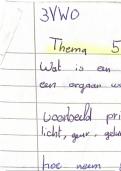 3VWO
Thema 5
Wat is een
een orgaan
voorbeeld pri
licht, geur, gelui
hoe neem